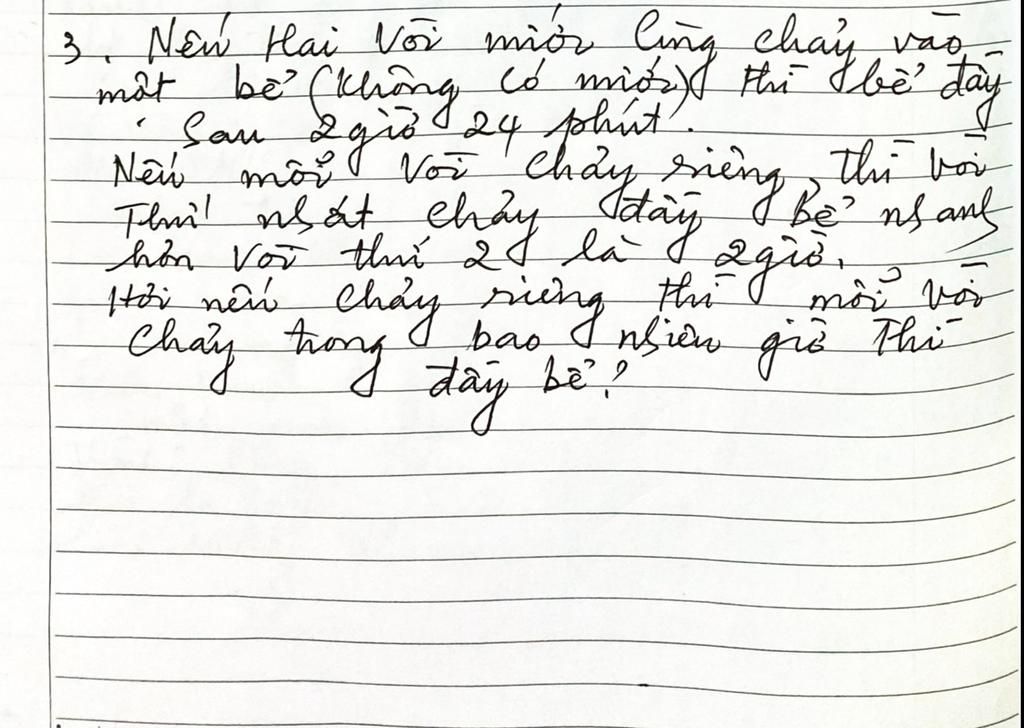 3. Nếu Hai Vòi nước Cùng chảy vào
một bể (không có nước) thì bể đầy
sau 2 giờ 24 phút.
Nếu mỗi Vòi chảy riêng thì vòi
Thứ nhất chảy đầy bể nhanh
hơn Vòi thứ 2 là 2 giờ.
Hỏi nếu chảy riêng thì mỗi vòi
chảy trong bao nhiêu giờ thì
đầy bể?